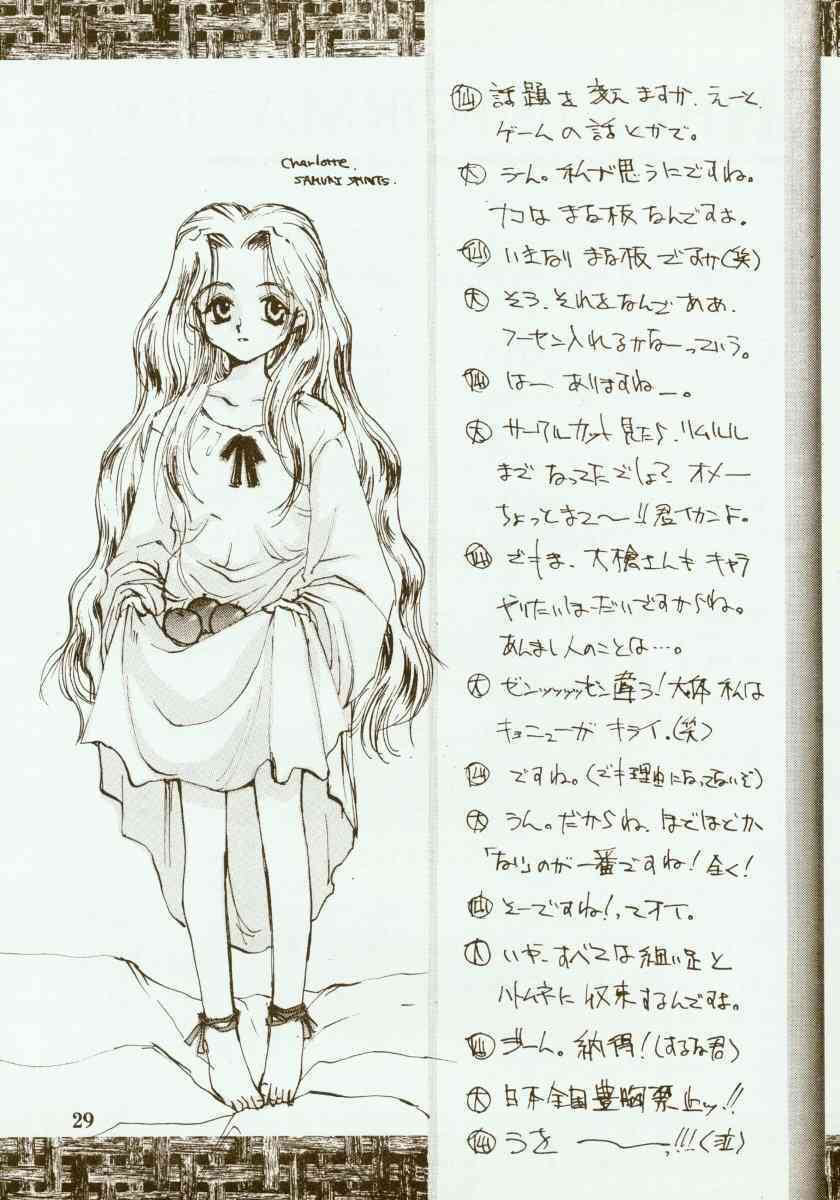 Charlotte.
SAMURAI SPIRITS.
仙 話題を変えますか、えーと、
ゲームの話とかで。
大 うーん。私が思うにですね。
ナコはまな板なんですよ。
仙 いきなりまな板ですか(笑)
大 そう、それをなんでああ、
フーセン入れるかなーっていう。
仙 はー ありますねー。
大 サークルカット見たら、リムルル
までなってたでしょ? オメー
ちょっとまて〜!!君イカンよ。
仙 でもま、大槍さんもキャラ
やりたいほーだいですからね。
あんまし人のことは…。
大 ゼンッッッッゼン違う!大体私は
キョニューがキライ。(笑)
仙 ですね。(でも理由になってないぞ)
大 うん。だからね、ほどほどか
「ない」のが一番ですね!全く!
仙 そーですね!ってオイ。
大 いや、すべては細い足と
ハトムネに収束するんですよ。
仙 うーん。納得!(するな君)
大 日本全国豊胸禁止ッ!!
仙 うを〜っ!!!(泣)
29